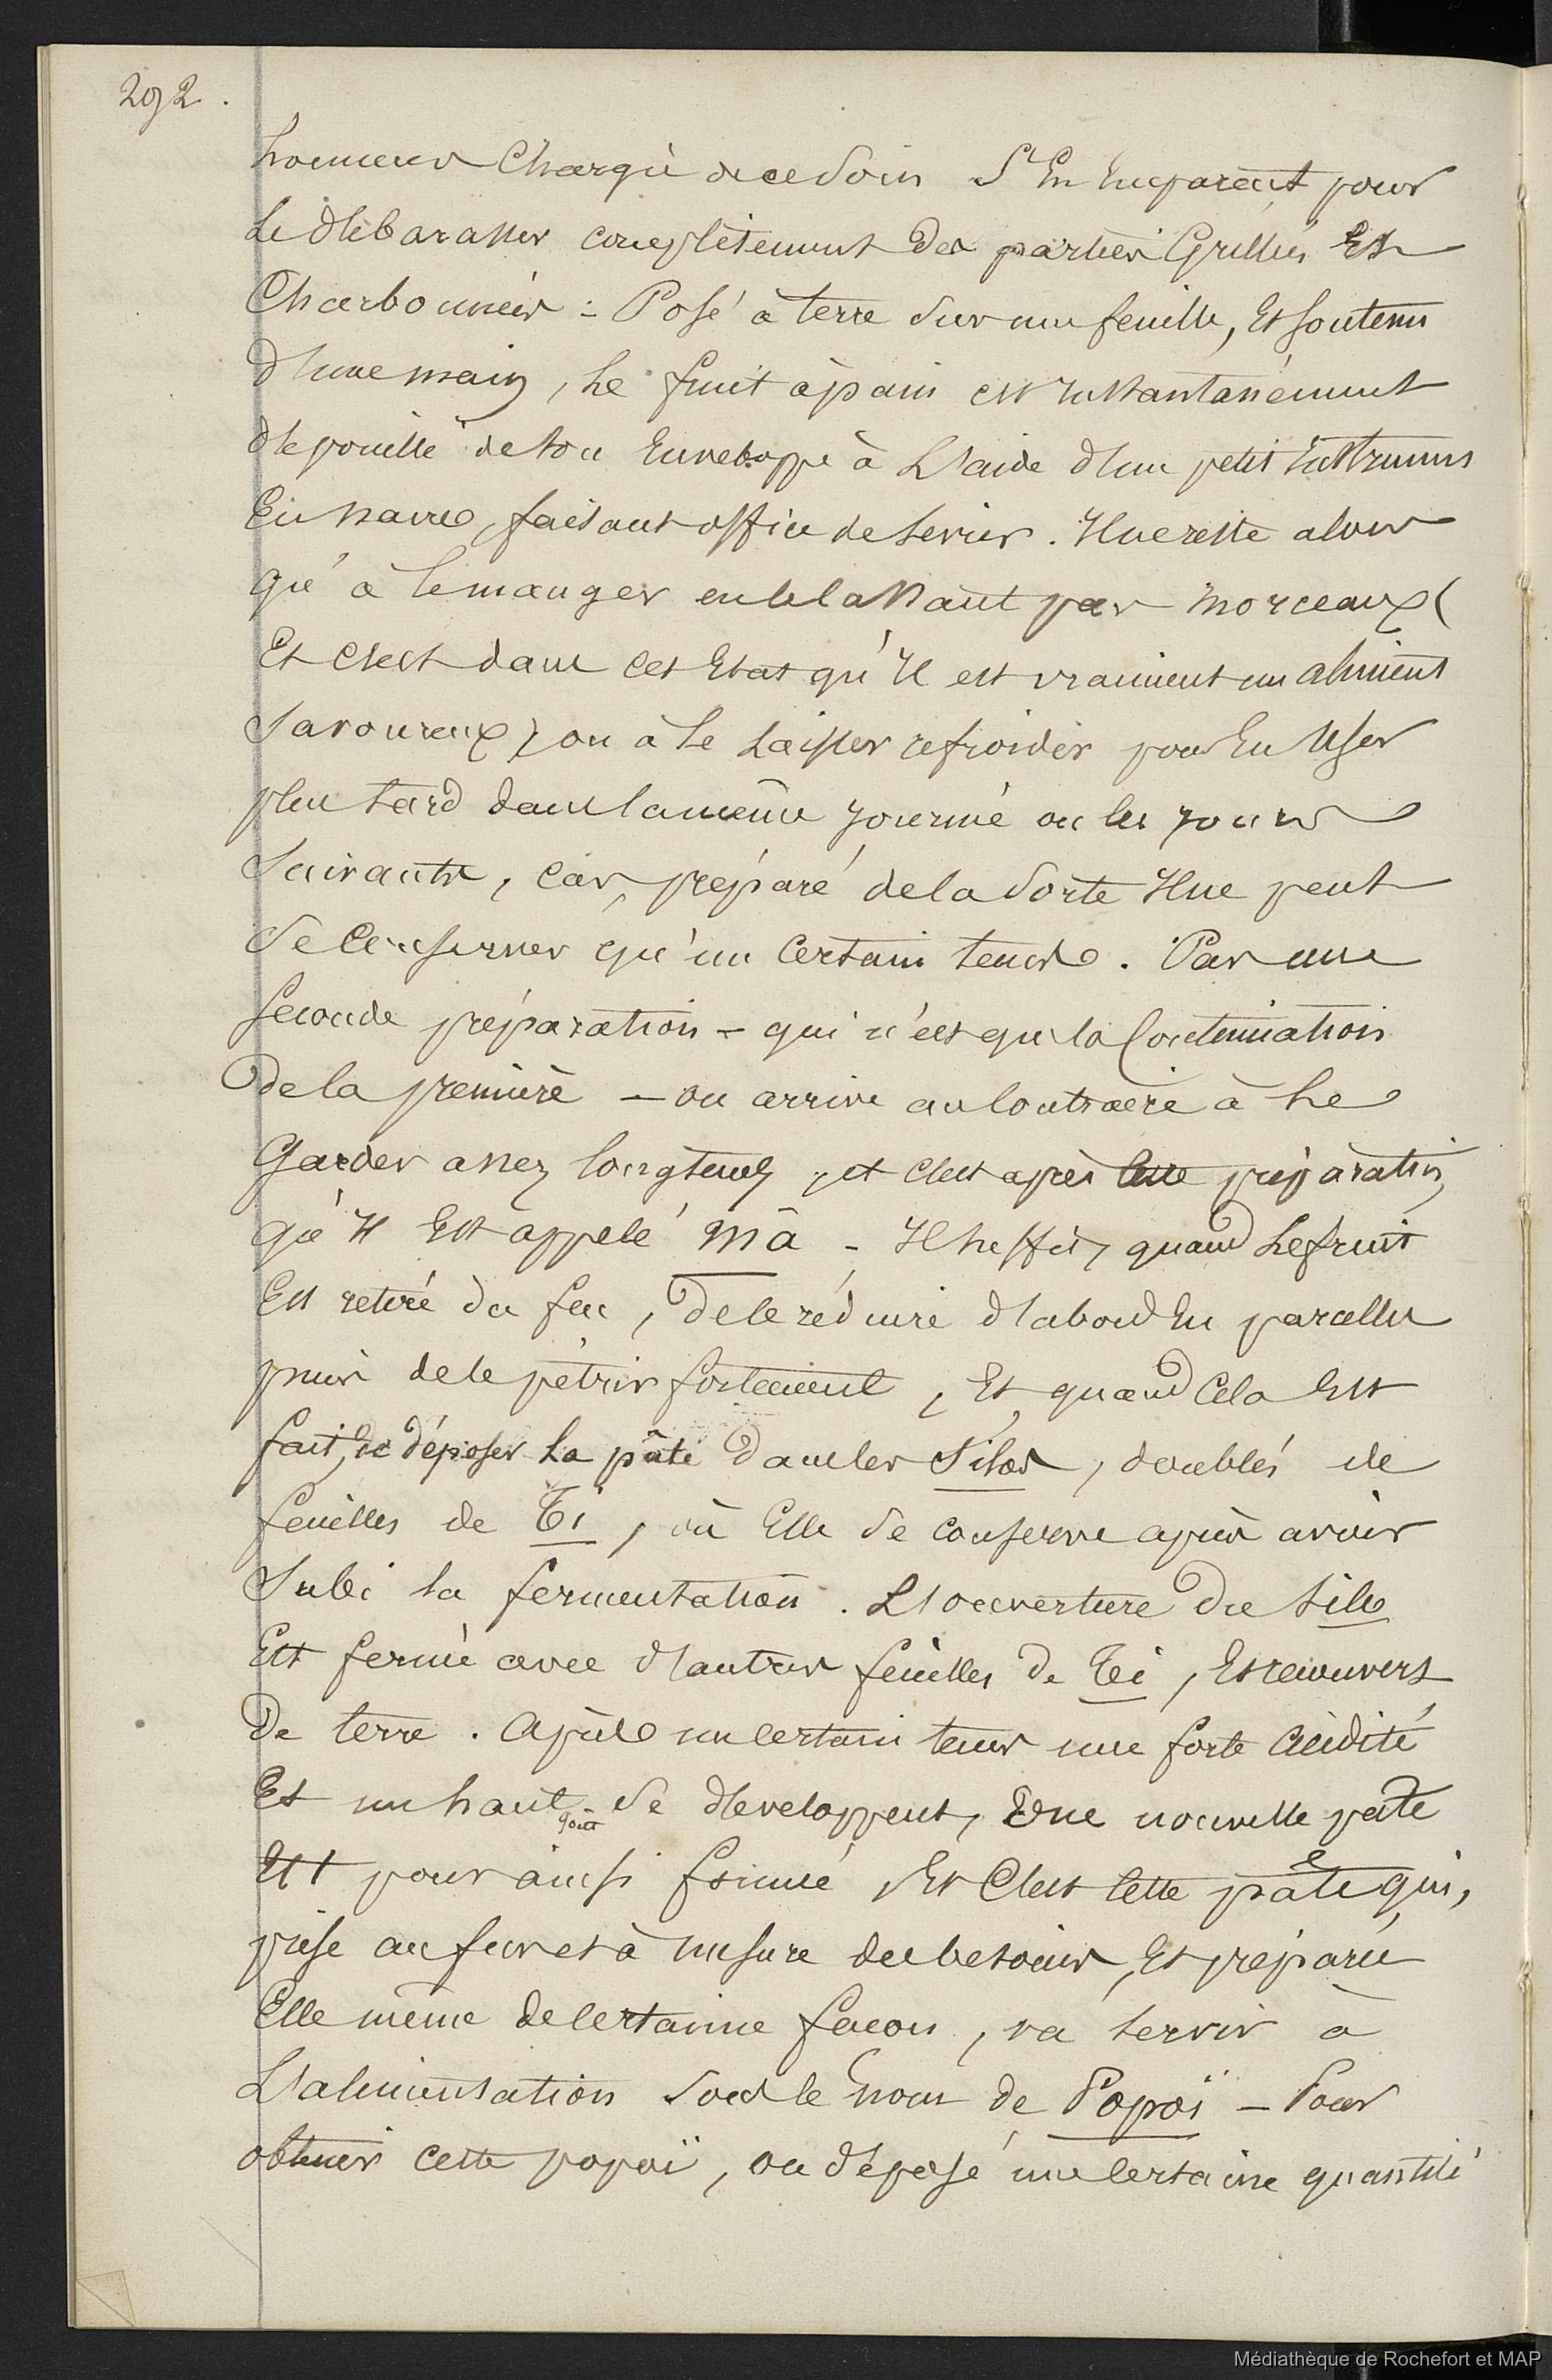 292.
hommes chargé de ce soin s'en emparent pour
le débarasser complètement des parties Grillées Et
Charbonnées : Posé à terre sur une feuille, Et soutenu
d'une main, le fruit à pain est instantanément
dépouillé de son Enveloppe à L'aide d'un petit instrument
En nacre, faisant office de Scrier. Il ne reste alors
qu'à le manger en le cassant par morceaux (
Et c'est dans cet Etat qu'Il est vraiment un aliment
savoureux) ou à le Laisser refroidir pour En User
plus tard dans la même journée ou les jours
suivants, car, préparé de la sorte Il ne peut
se Conserver qu'un Certain temps. Par une
seconde préparation - qui n'est que la Continuation
De la première - on arrive au Contraire à le
Garder assez longtemps, et c'est après cette préparation
qu'Il Est appelé mâ - Il suffit, quand Le fruit
Est retiré du feu, De le réduire d'abord En parcelles
puis de le pétrir fortement, Et quand Cela Est
fait, de déposer la pâte Dans les Silos, doublés de
feuilles de Ti, où Elle se conserve après avoir
subi la fermentation. L'ouverture Du Silo
Est fermé avec d'autres feuilles De Ti, Et recouvers
De terre. Après un Certain temps une forte Acidité
Et un haut goût se développent, Une nouvelle pâte
Est pour ainsi formée, Et C'est Cette pâte qui,
prise au fur et à mesure des besoins, Et préparée
Elle même de Certaine façon, va servir à
L'alimentation sous le nom de Popoï - Pour
obtenir cette popoï, on dépose une Certaine quantité
Médiathèque de Rochefort et MAP